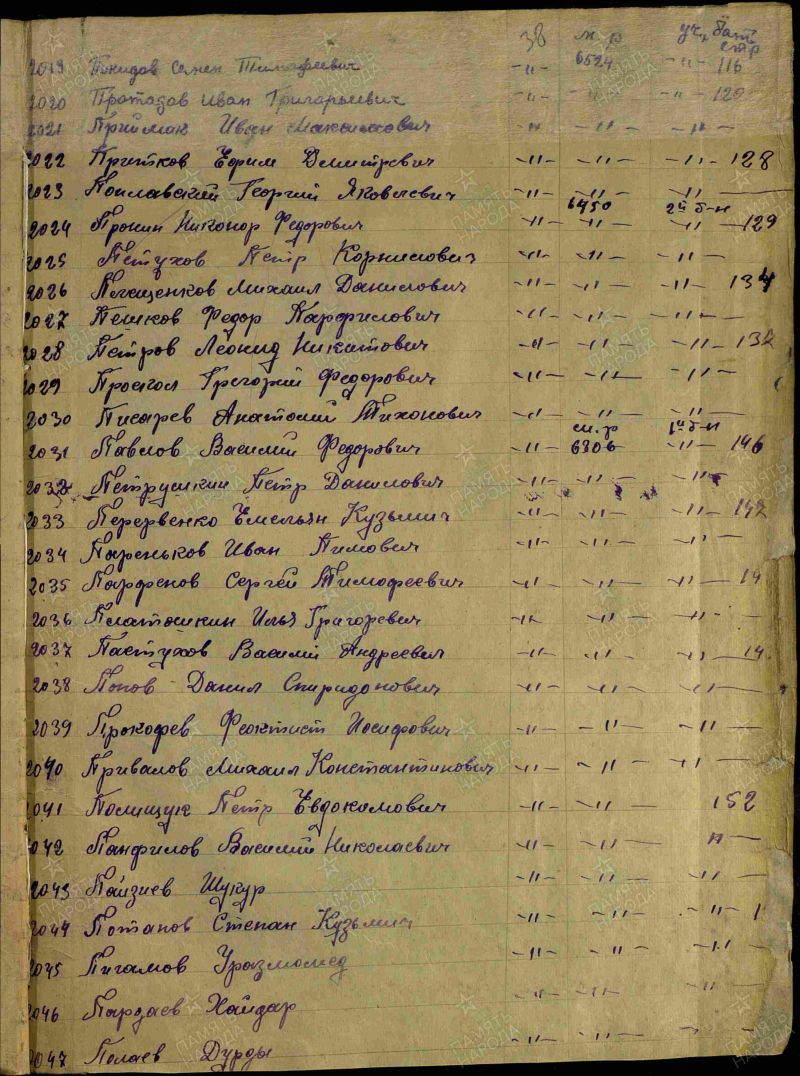 38 м. р уч. бат стр
2019 Покидов Семен Тимофеевич -"- 6524 -"- 116
2020 Протадов Иван Григорьевич -"- -"- -"- 120
2021 Приймак Иван Максимович -"- -"- -"-
2022 Притков Ефим Дмитревич -"- -"- -"- 128
2023 Поплавский Георгий Яковлевич -"- -"- -"-
6450 2й б-н
2024 Пронин Никонор Федорович -"- -"- -"- 129
2025 Петухов Петр Корнилович -"- -"- -"-
2026 Михаил Данилович -"- -"- -"- 134
2027 Пешков Федор Парфилович -"- -"- -"-
2028 Петров Леонид Никитович -"- -"- -"- 138
2029 Григорий Федорович -"- -"- -"-
2030 Писарев Анатолий Тихонович -"- -"- -"-
м.р 1й б-н
2031 Павлов Василий Федорович -"- 6806 -"- 146
2032 Петрушкин Петр Данилович -"- -"- -"-
2033 Перервенко Емельян Кузьмич -"- -"- -"- 142
2034 Пареньков Иван Пимович -"- -"- -"-
2035 Парфенов Сергей Тимофеевич -"- -"- -"- 14
2036 Платошкин Илья Григоревич -"- -"- -"-
2037 Пастухов Василий Андреевич -"- -"- -"- 14
2038 Попов Данил Спиридонович -"- -"- -"-
2039 Прокофев Феоктист Иосифович -"- -"- -"-
2040 Привалов Михаил Константинович -"- -"- -"-
2041 Полищук Петр Евдокимович -"- -"- 152
2042 Панфилов Василий Николаевич -"- -"- "
2043 Пайзиев Шукур -"- -"- -"-
2044 Потапов Степан Кузьмич -"- -"- -"- 1
2045 Пигамов Уразмомед -"- -"- -"-
2046 Пардаев Хайдар -"- -"- -"-
2047 Полаев Дурды -"- -"- -"-